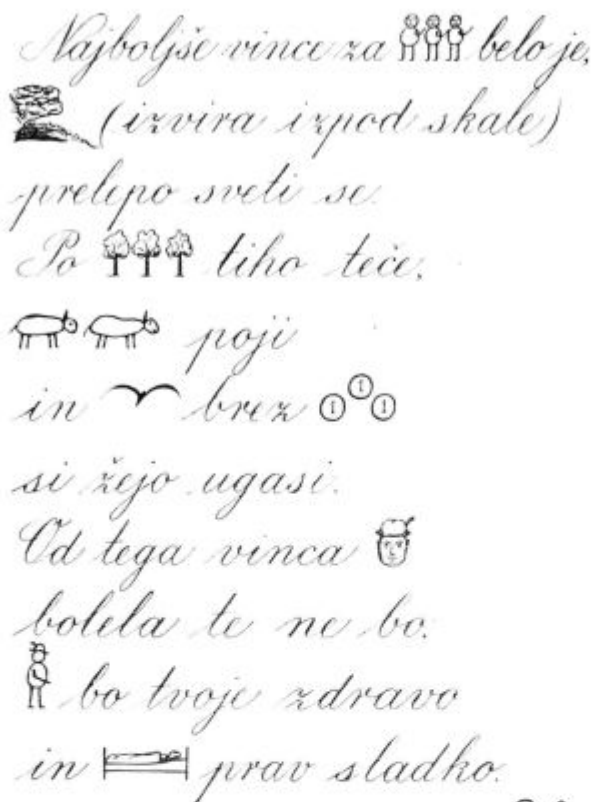 Najboljše vince za belo je,
(izvira izpod skale)
prelepo sveti se.
Po tiho teče,
poji
in brez 1 1 1
si žejo ugasi.
Od tega vinca
bolela te ne bo.
bo tvoje zdravo
in prav sladko.